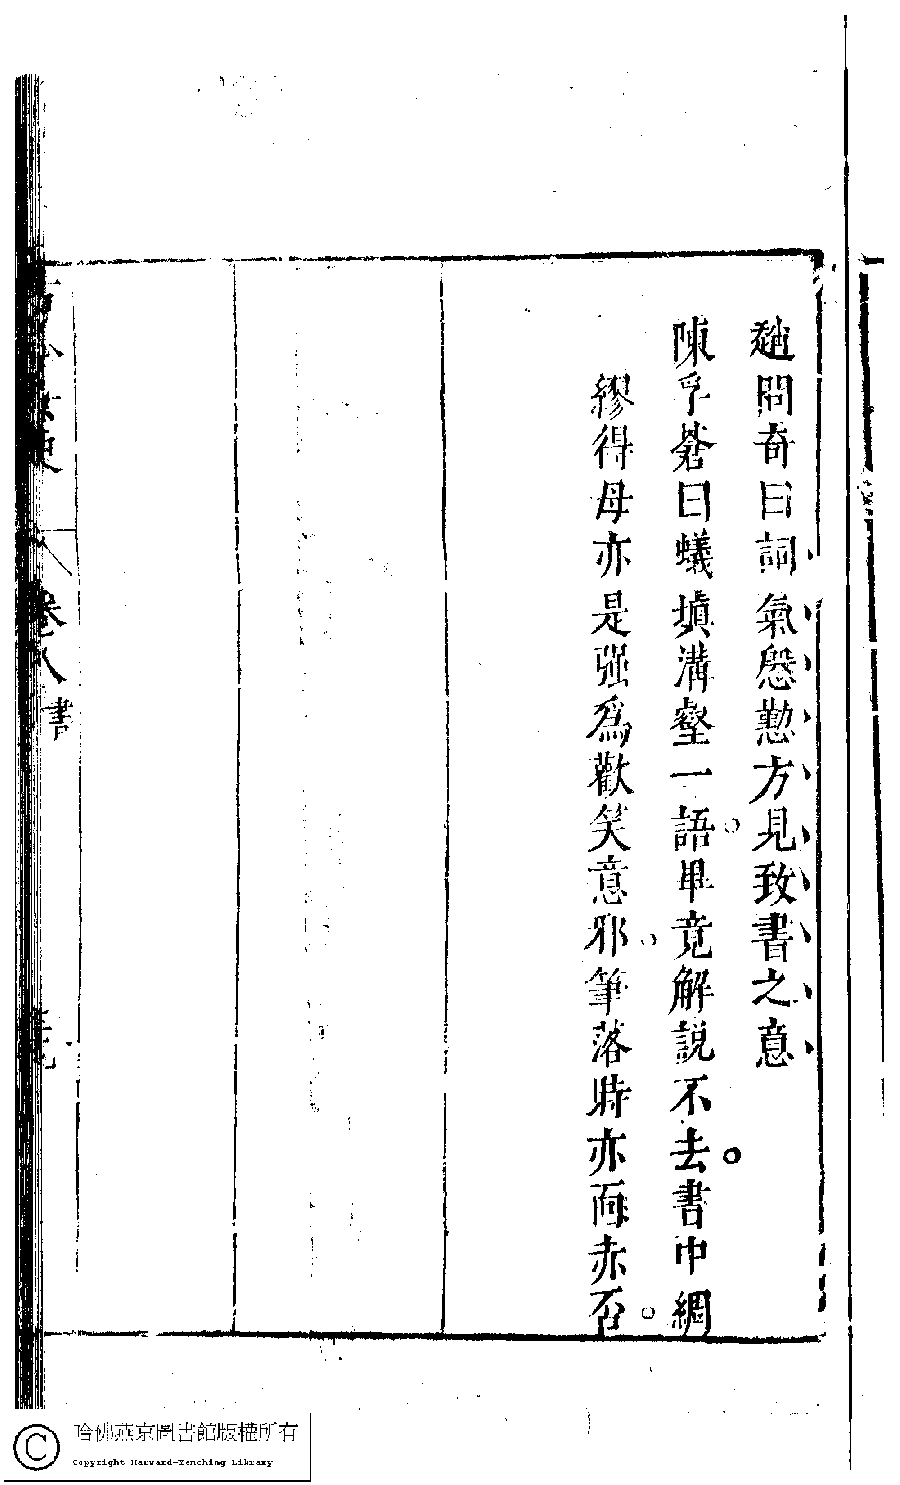 趙問奇曰詞氣慇懃方見致書之意
陳孚蒼曰蟻填溝壑一語畢竟解說不去書中綢
繆得毋亦是强為歡笑意邪筆落時亦面赤否
卷八 書
哈佛燕京圖書館版權所有
Copyright Harvard-Yenching Library